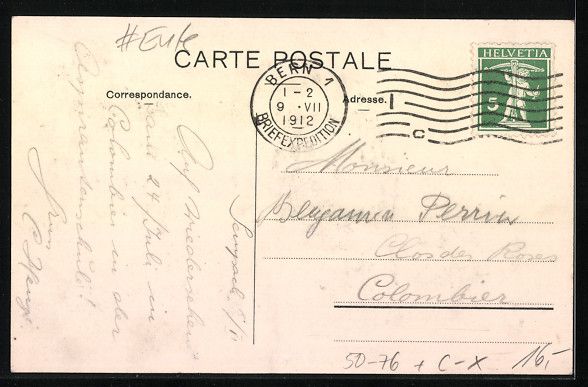 #Eule
CARTE POSTALE
HELVETIA
5
BERN 1
1-2
9.VII
1912
BRIEFEXPEDITION
C
Correspondance.
Adresse.
Monsieur
Benjamin Perrin
Clos des Roses
Colombier
Auf Wiedersehen
am 24 Juli in
Colombier in der
50-76 + C-X 16,-